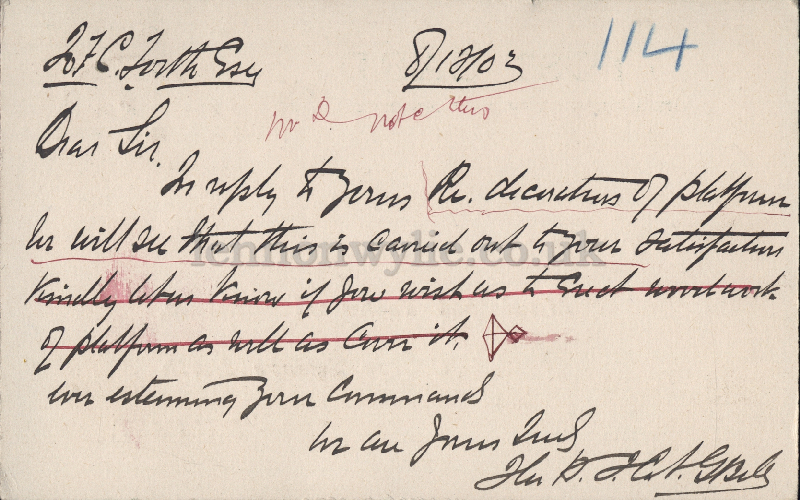 F. C. Forth Esq 8/12/03 114
Dear Sir. note this
In reply to yours Re. decorations of platform
We will see that this is carried out to your satisfaction
lennonwylie.co.uk
Kindly let us know if you wish us to Erect woodwork
of platform as well as Cover it.
ever esteeming your Commands
We are Yours Truly